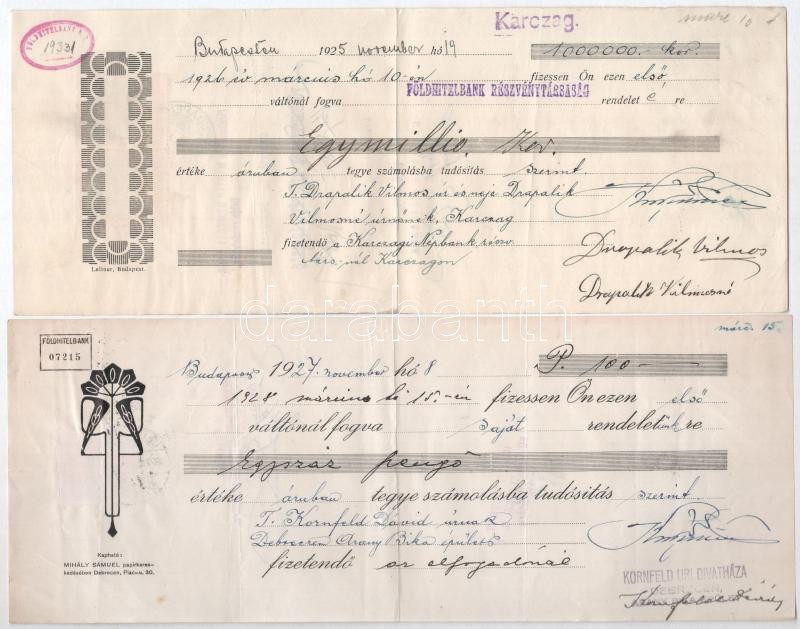 Karczag.
márc 10
FÖLDHITELBANK R.T.
19331
Budapesten 1925 november hó 19 1000000.- kor.
1926 év március hó 10-én fizessen Ön ezen első
váltónál fogva FÖLDHITELBANK RÉSZVÉNYTÁRSASÁG rendelet é re
Egymillio. Kor.
értéke áruban tegye számolásba tudósitás szerint
T. Drapalik Vilmos úr és neje Drapalik
Vilmosné úrnőnek, Karczag
fizetendő a Karczagi Népbank részv
társ.-nál Karczagon
Drapalik Vilmos
Drapalik Vilmosné
Leitner, Budapest.
darabanth
márc. 15.
FÖLDHITELBANK
07215
Budapest 1927. november hó 8 P. 100—
1928 március hó 15.-én fizessen Ön ezen első
váltónál fogva saját rendeletünkre
Egyszáz pengő
értéke áruban tegye számolásba tudósitás szerint.
T. Kornfeld Dávid úrnak
Debreczen Arany Bika épület
fizetendő az elfogadónál
KORNFELD URI DIVATHÁZA
DEBRECEN,
Kornfeld Dávid
Kapható:
MIHÁLY SÁMUEL papirkeres-
kedésében Debrecen, Piac-u. 30.